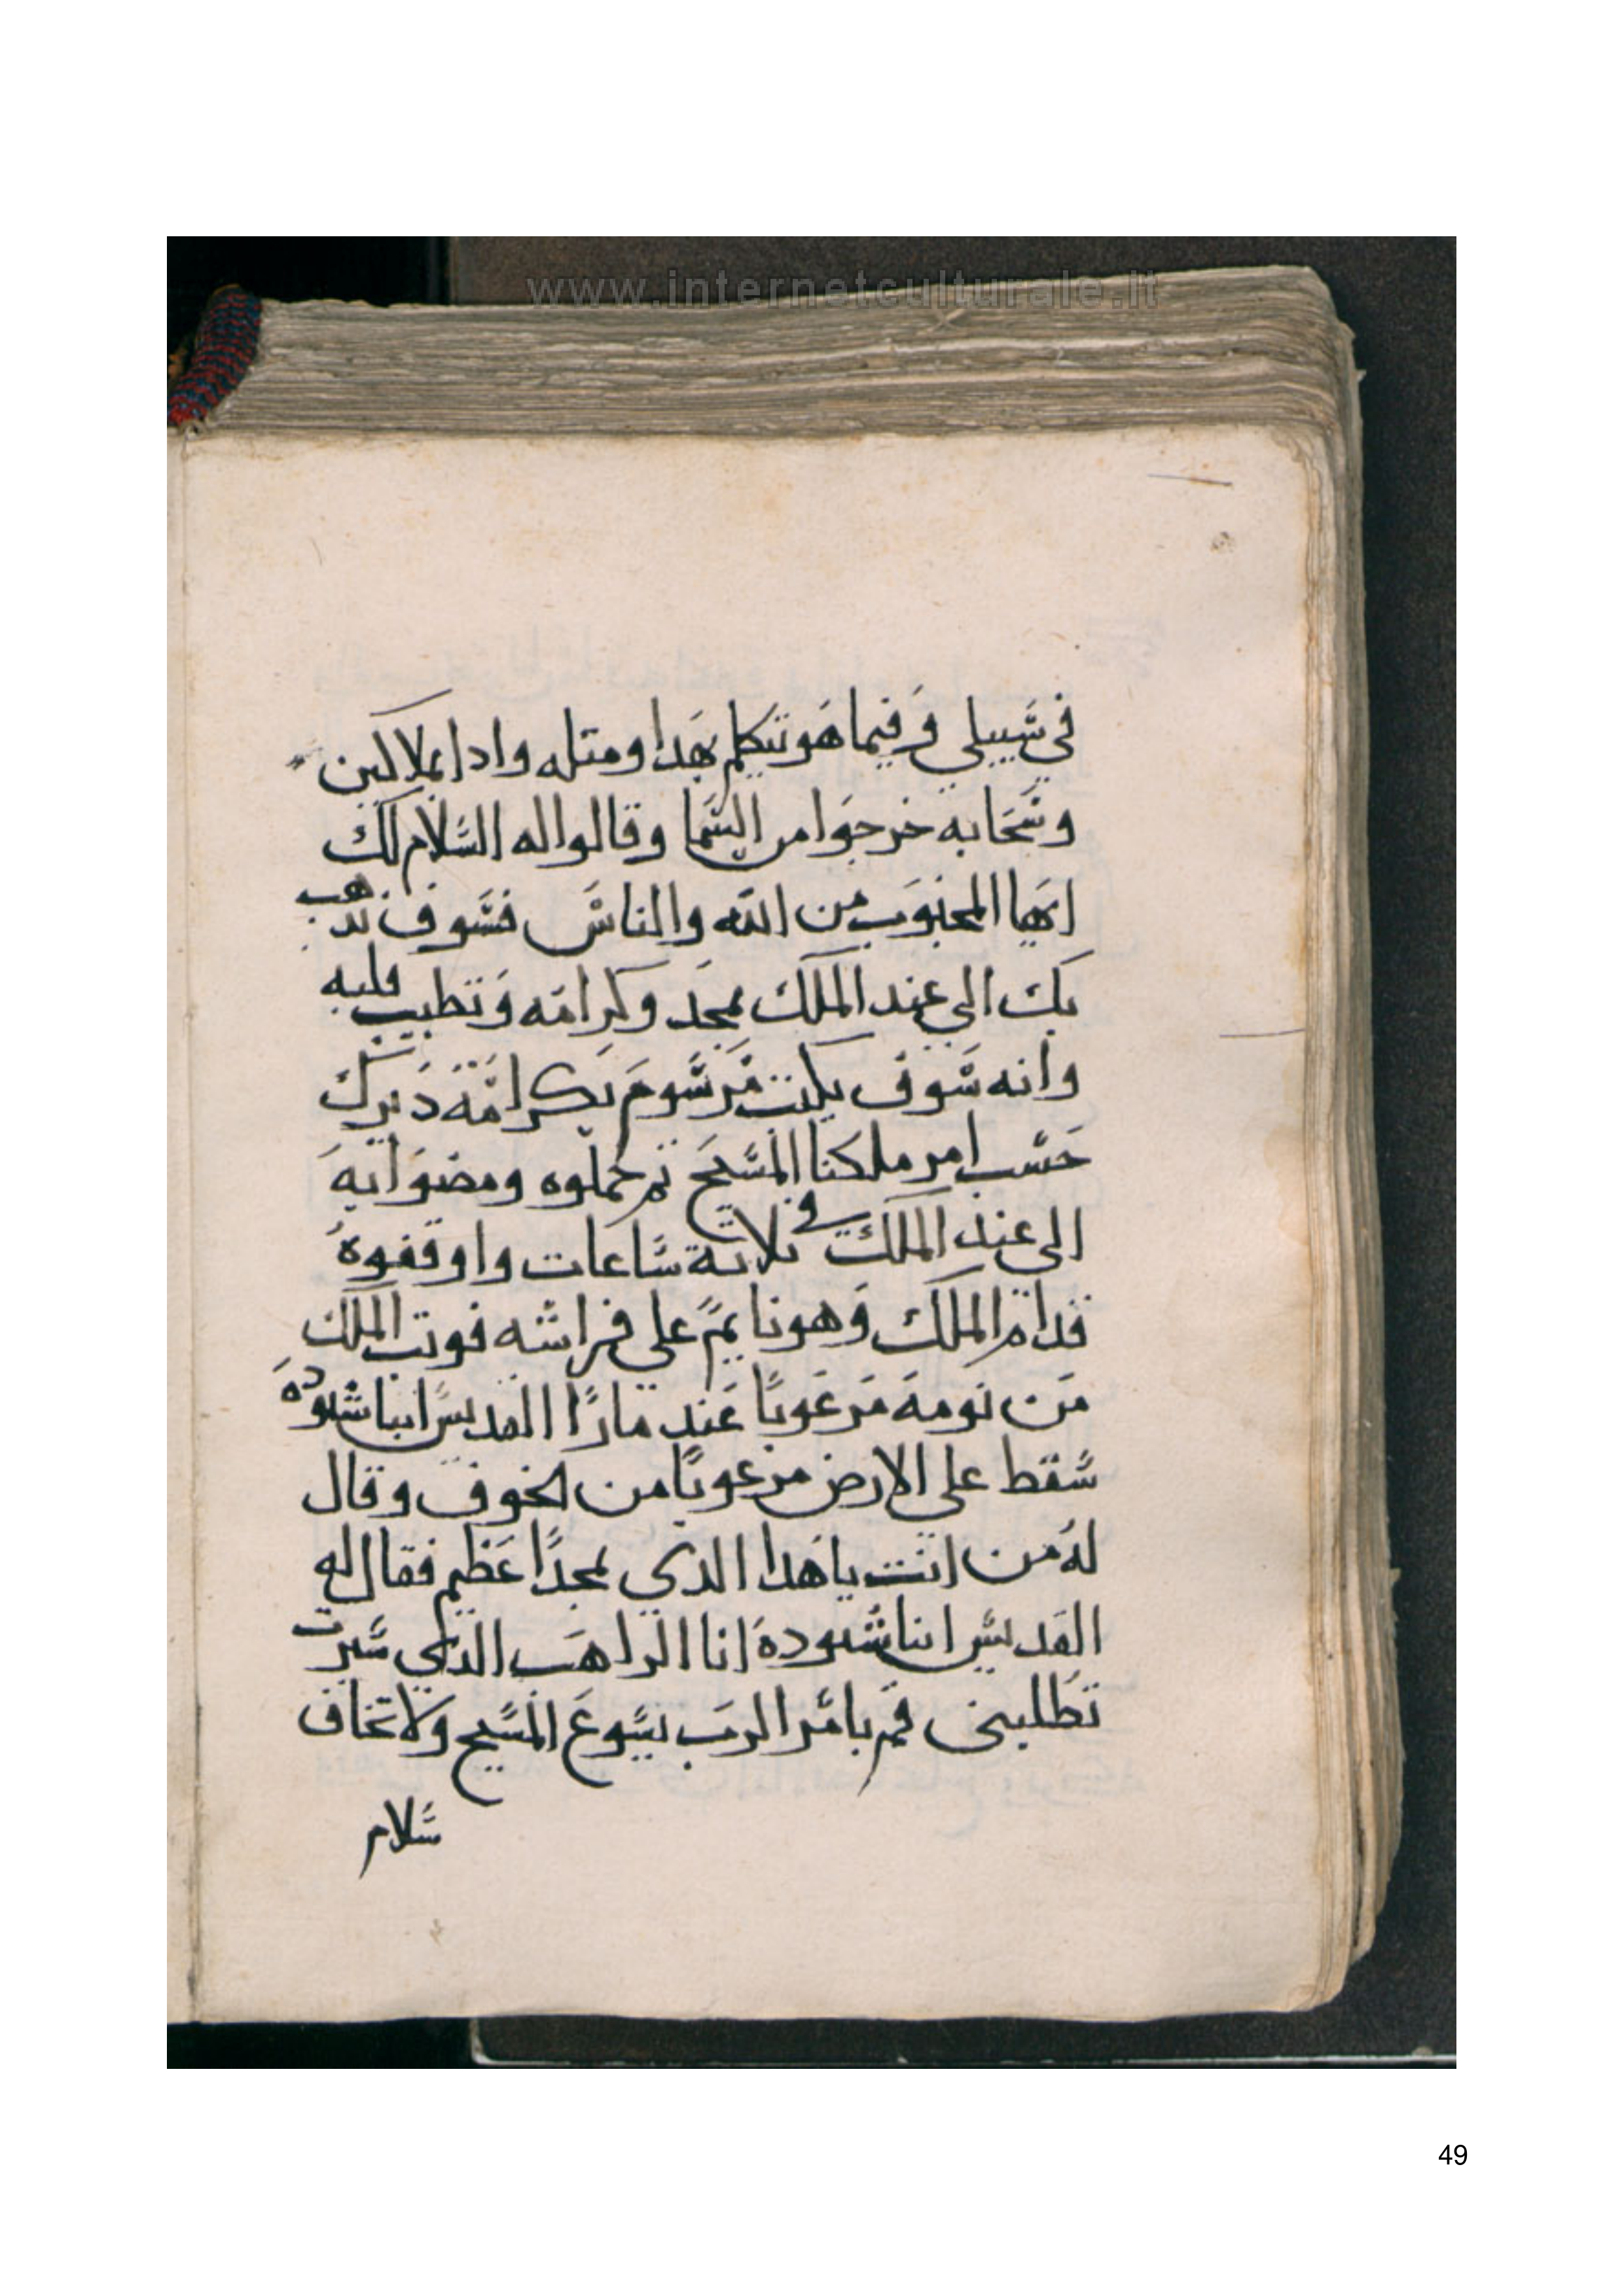 www.internetculturale.it
في سبيلي وفيما هو يتكلم بهدا ومتله وادا بملاكين
وسحابه خرجوا من السما وقالوا له السلام لك
ايها المحبوب من الله والناس فسوف ندهب
بك الي عند الملك بمجد وكرامه وتطيب قلبه
وانه سوف يكتب مرسوم بكرامة ديرك
حسب امر ملكنا المسيح تم حملوه ومضوا به
الي عند الملك في تلاتة ساعات واوقفوه
قدام الملك وهو نايم علي فراشه فوتب الملك
من نومه مرعوبا عند مارا القديس انبا شنوده
سقط علي الارض مرعوبا من الخوف وقال
له من انت يا هدا الدي بمجدا عظيم فقال له
القديس انبا شنوده انا الراهب الدي سيرت
تطلبني قم بامر الرب يسوع المسيح ولا تخاف
سلام
49